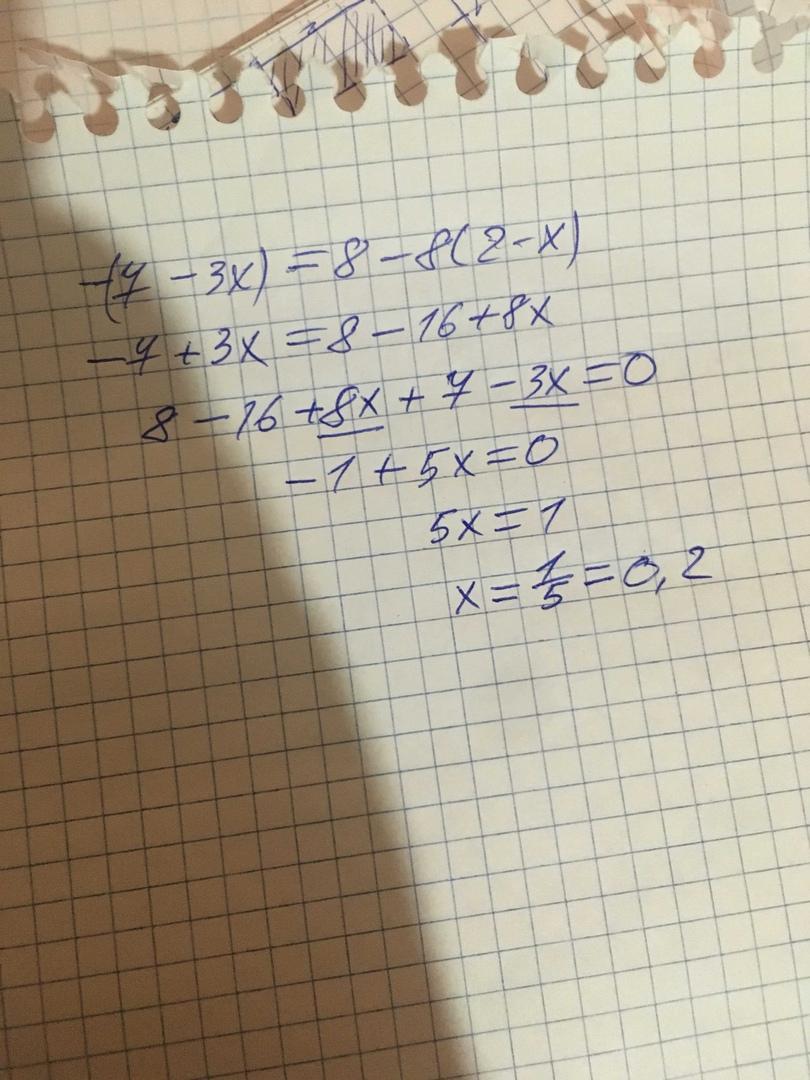 -(7 - 3x) = 8 - 8(2 - x)
-7 + 3x = 8 - 16 + 8x
8 - 16 + 8x + 7 - 3x = 0
-1 + 5x = 0
5x = 1
x = 1/5 = 0,2